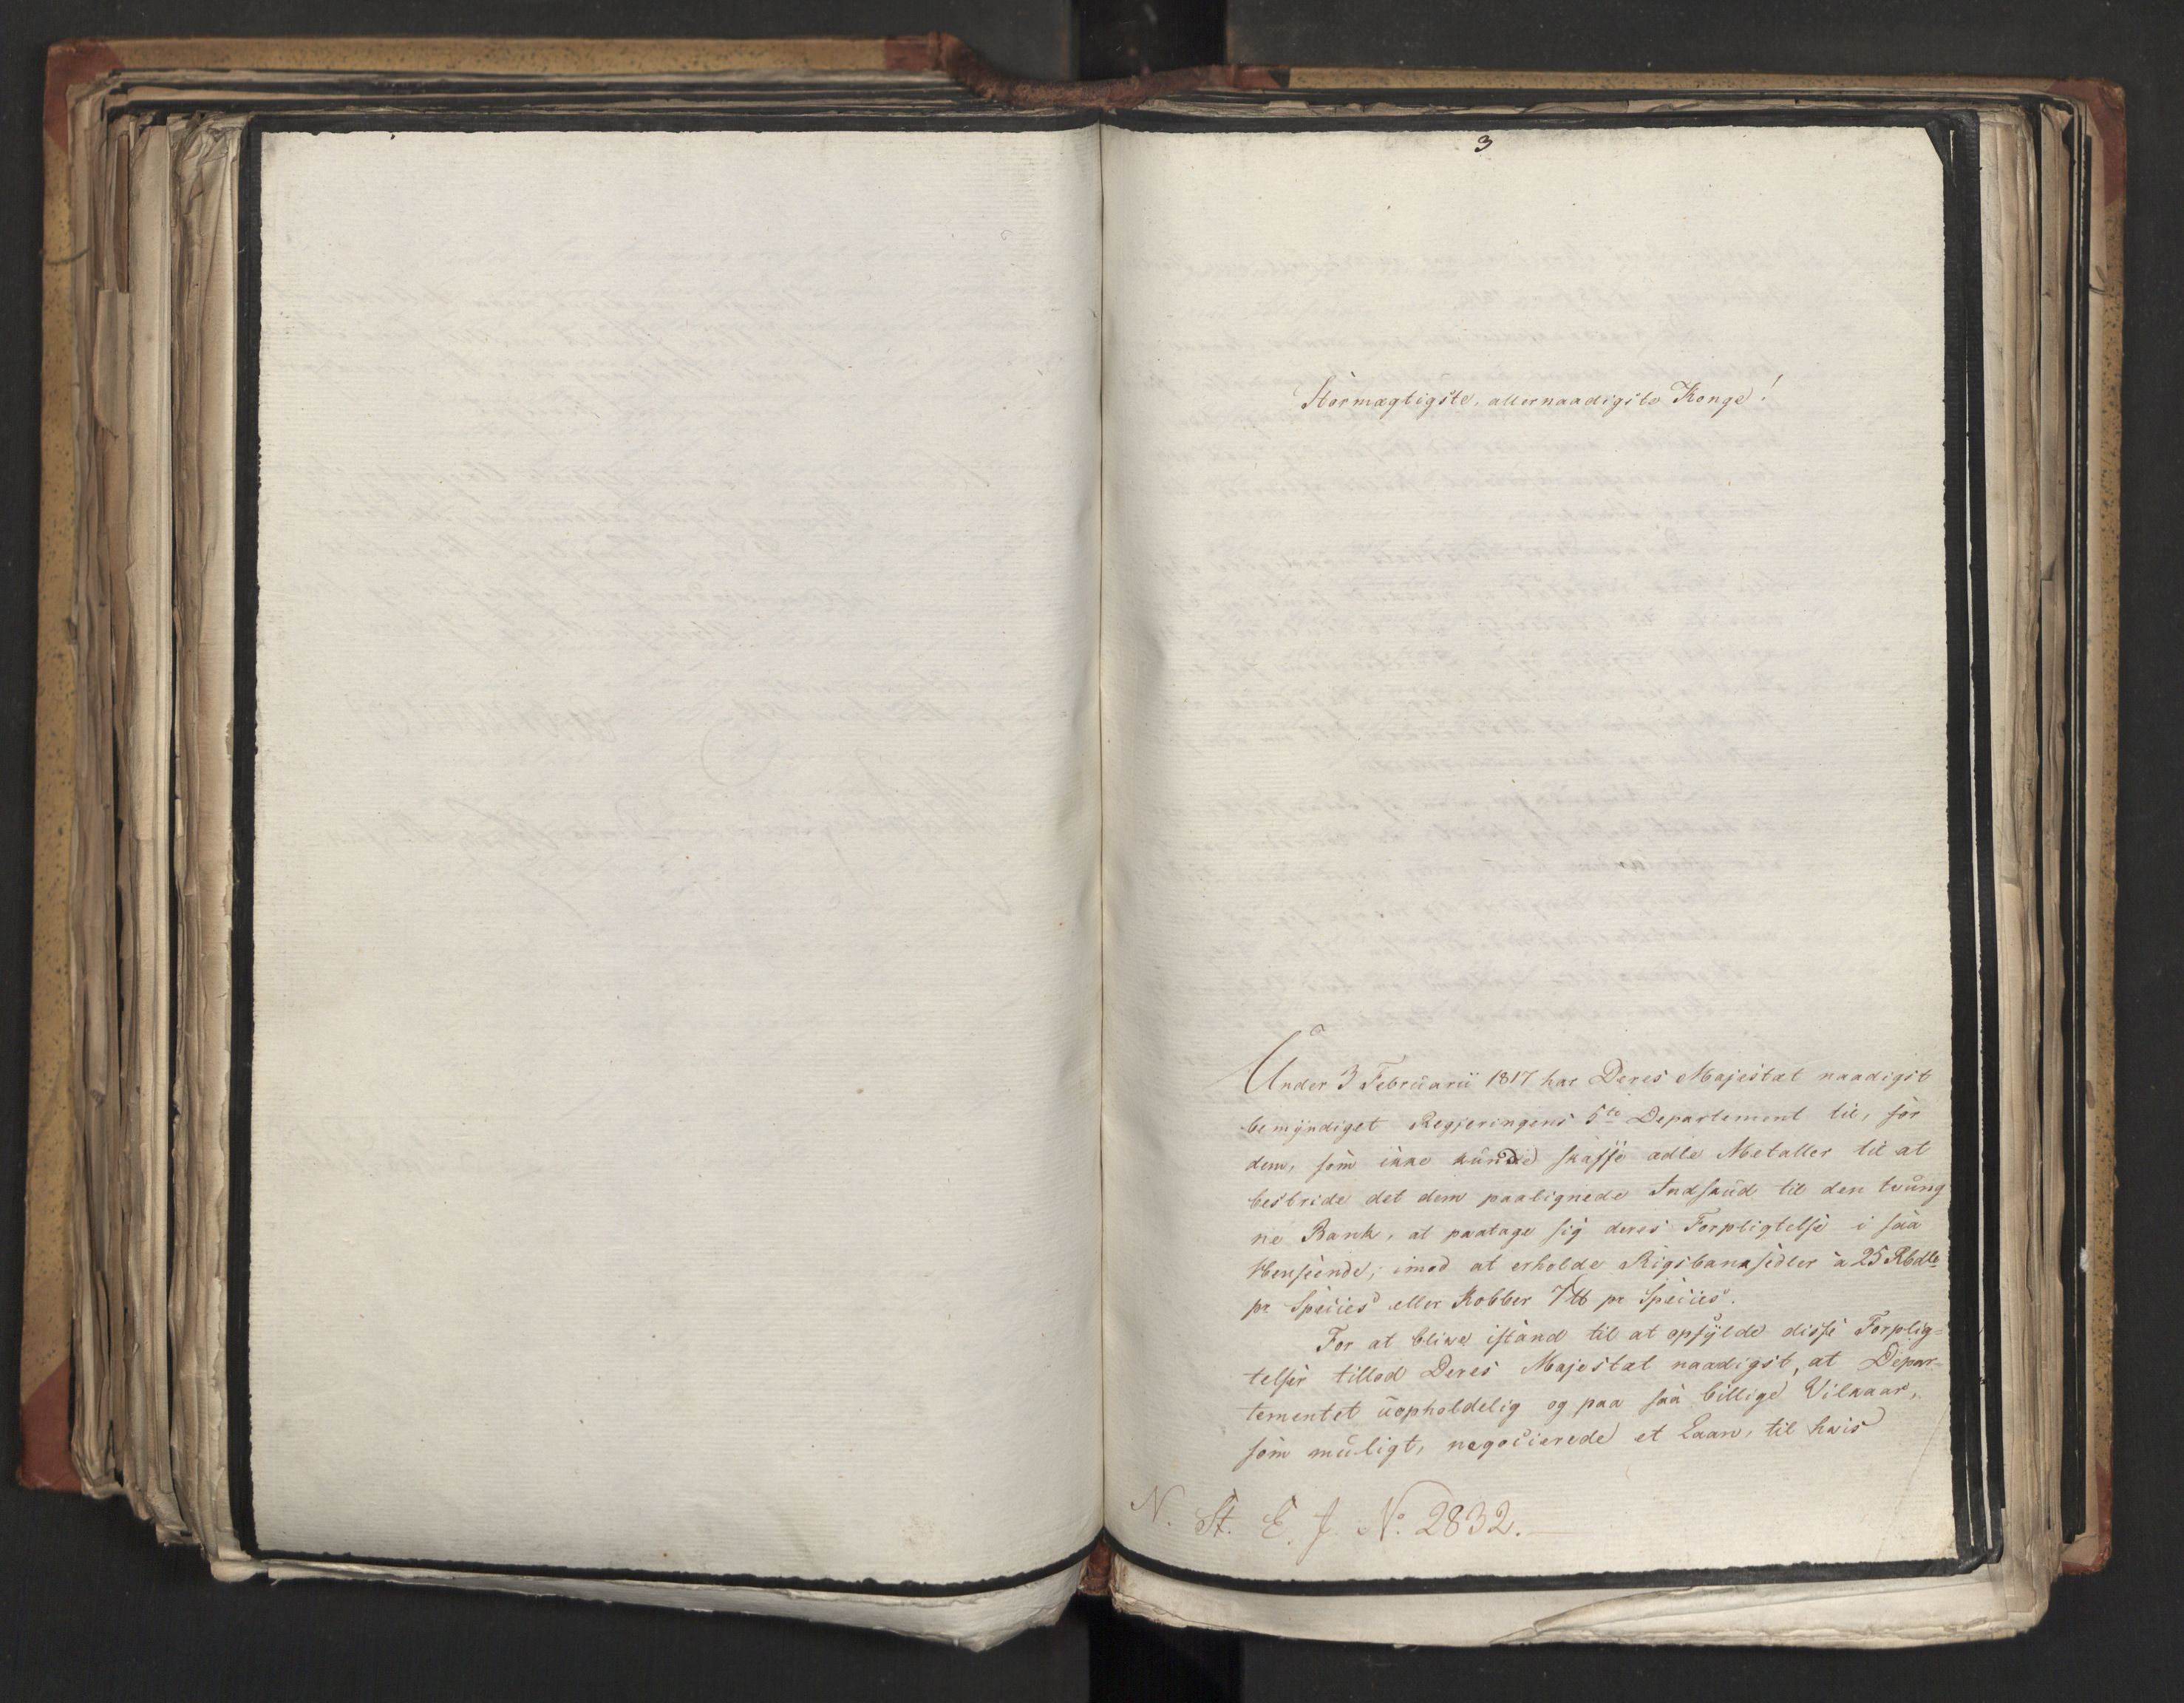 3
Stormægtigste, allernaadigste Konge!
Under 3 Februarii 1817 har Deres Majestæt naadigst
bemyndiget Regjeringens 5te Departement til, for
dem, som ikke kunde skaffe ædle Metaller til at
bestride det dem paalignede Indskud til den tvung
ne Bank, at paatage sig deres Forpligtelse i saa
Henseende, imod at erholde Rigsbanksedler a 25 Rbdlr
pr Species eller Kobber 7 ℔ pr Species.
For at blive istand til at opfylde disse Forplig=
telser tillod Deres Majestæt naadigst, at Depar=
tementet uopholdelig og paa saa billige Vilkaar,
som muligt, negocierede et Laan, til hvis
N. St. E. J. No. 2832.